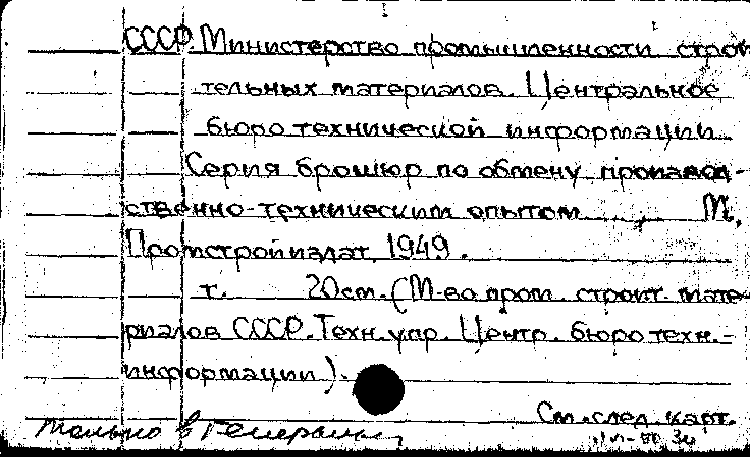 СССР. Министерство промышленности строи
тельных материалов. Центральное
бюро технической информации.
Серия брошюр по обмену производ-
ственно-техническим опытом ..., М.,
Промстройиздат, 1949.
т. 20 см. (М-во пром. строит. мате-
риалов СССР. Техн. упр. Центр. бюро техн.-
информации).
См. след. карт.
только в Генеральн.